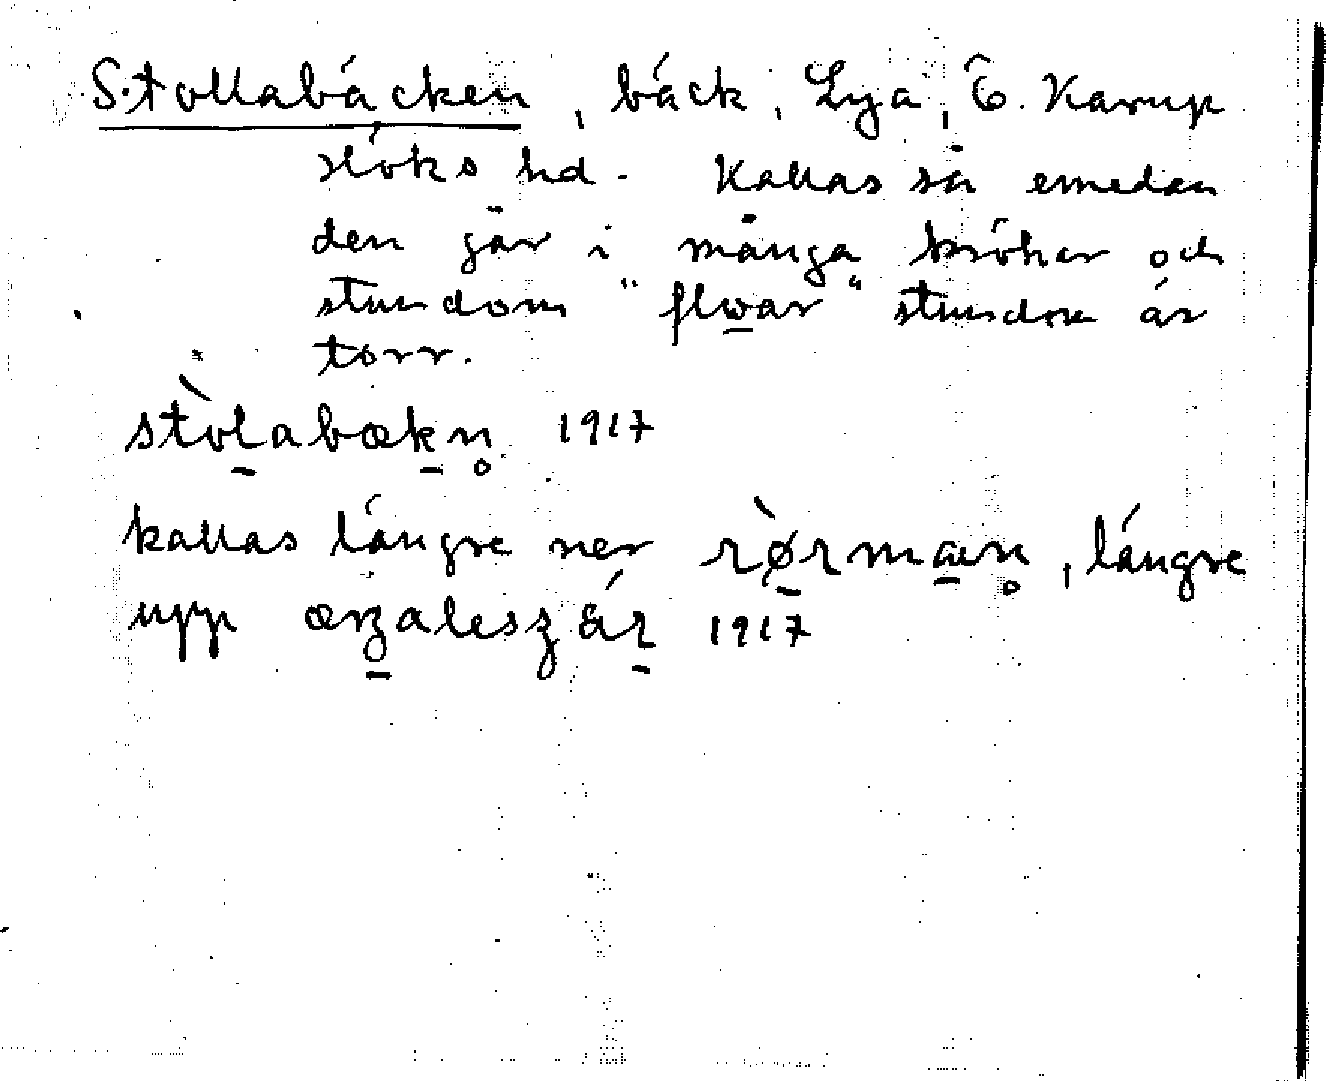 Stollabäcken, bäck, Lya, Ö. Karup
Höks hd. Kallas så emedan
den går i många krökar och
stundom "flwar" stundom är
torr.
stòlabækn̥ 1917
kallas längre ner rø̀rmæn̥, längre
upp 1917